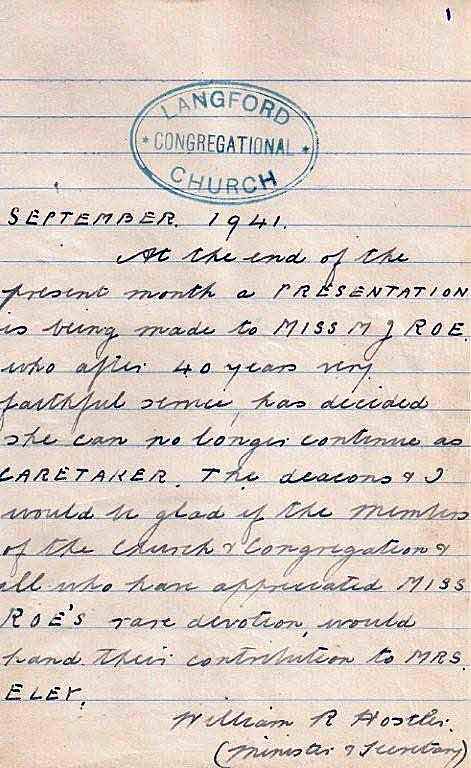 1
LANGFORD
* CONGREGATIONAL *
CHURCH
SEPTEMBER. 1941.
At the end of the
present month a PRESENTATION
is being made to MISS M J ROE.
who after 40 years very
faithful service, has decided
she can no longer continue as
CARETAKER. The deacons & I
would be glad if the members
of the Church & Congregation &
all who have appreciated MISS
ROE'S rare devotion, would
hand their contribution to MRS.
ELEY.
William R Hostler.
(Minister & Secretary)